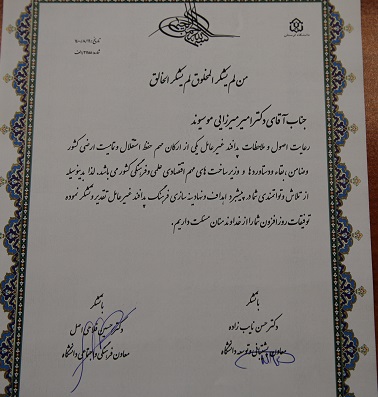 من لم یشکر المخلوق لم یشکر الخالق
جناب آقای دکتر امیر میرزایی موسیوند
رعایت اصول و ملاحظات پدافند غیرعامل یکی از ارکان مهم حفظ استقلال و تمامیت ارضی کشور
وضامن بقاء و دستاوردها و زیرساخت های مهم اقتصادی علمی و فرهنگی کشور می باشد. لذا بدینوسیله
از تلاش و توانمندی شما در پیشبرد اهداف و نهادینه سازی فرهنگ پدافند غیرعامل تقدیر و تشکر نموده
توفیقات روزافزون شما را از خداوند منان مسئلت داریم.
باتشکر
دکتر حسن نایب زاده
معاون پشتیبانی و توسعه دانشگاه
باتشکر
دکتر حسین اصل
معاون فرهنگی و اجتماعی دانشگاه